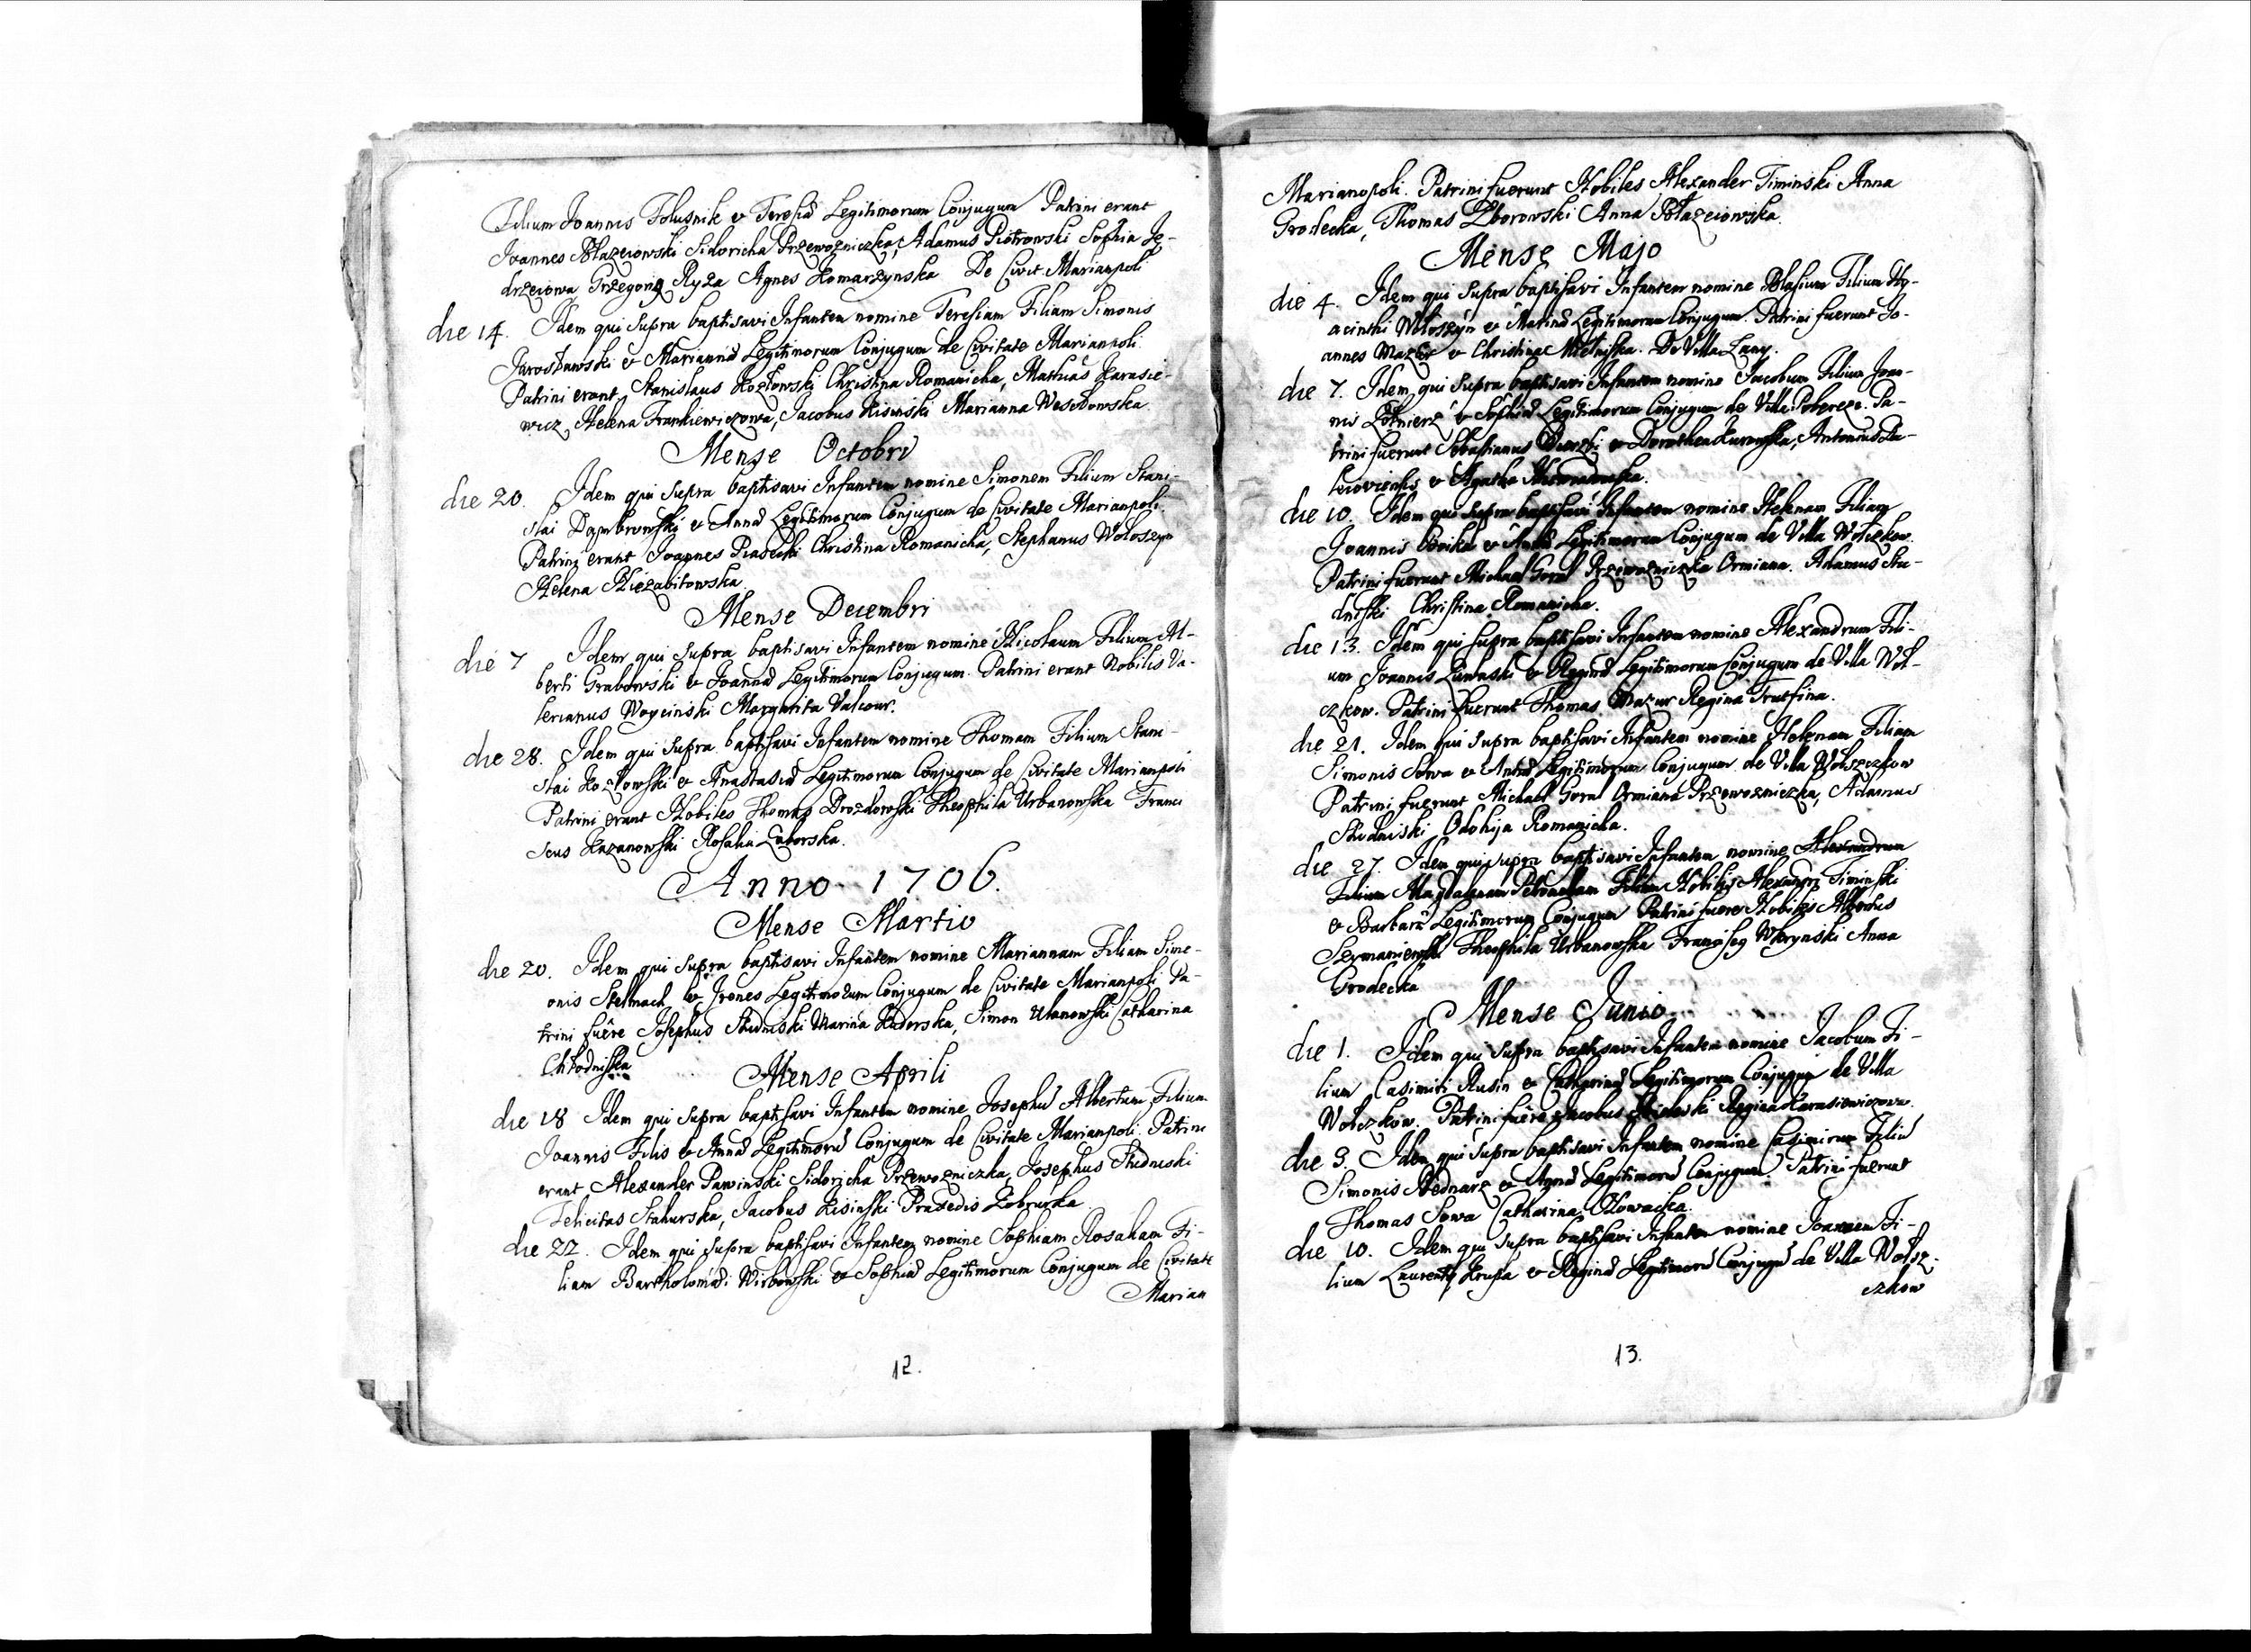 Filium Joannis Tokusnik & Teresiæ Legitimorum Conjugum Patrini erant
Joannes Błazeiowski Sidoricha Przewozniczka, Adamus Piotrowski Sophia Je-
drzeiowa Grzegorz Ryza Agnes Komarzynska De Civit: Marianpoli
die 14. Idem qui supra baptisavi Infantem nomine Teresiam Filiam Simonis
Jarosławski & Mariannæ Legitimorum Conjugum de Civitate Marianpoli.
Patrini erant Stanislaus Kozłowski Christina Romanicha, Mathias Karasie-
wicz Helena Frankiewiczowa, Jacobus Kisinski Marianna Wesołowska
Mense Octobri
die 20. Idem qui supra baptisavi Infantem nomine Simonem Filium Stani-
slai Dąmbrowski & Annæ Legitimorum Conjugum de Civitate Marianpoli.
Patrini erant Joannes Piasecki Christina Romanicha, Stephanus Wołoszyn
Helena Niezabitowska
Mense Decembri
die 7 Idem qui supra baptisavi Infantem nomine Nicolaum Filium Al-
berti Grabowski & Joannæ Legitimorum Conjugum. Patrini erant Nobilis Va-
lerianus Woycinski Margarita Valcour.
die 28. Idem qui supra baptisavi Infantem nomine Thomam Filium Stani-
slai Kozłowski & Anastasiæ Legitimorum Conjugum de Civitate Marianpoli
Patrini erant Nobiles Thomas Drozdowski Theophila Urbanowska Franci
scus Kazanowski Rosalia
Anno 1706.
Mense Martio
die 20. Idem qui supra baptisavi Infantem nomine Mariannam Filiam Sime-
onis Stelmach & Irenes Legitimorum Conjugum de Civitate Marianpoli Pa-
trini fuêre Josephus Studniski Marina Sim​on Ulanowski Catharina
Chłodniska
Mense Aprili
die 18 Idem qui supra baptisavi Infantem nomine Josephū Albertum Filium
Joannis Filis & Annæ Legitimorū Conjugum de Civitate Marianpoli. Patrini
erant Alexander Pawinski Sidoricha Przewozniczka, Josephus Studniski
Felicitas Stahurska, Jacobus Kisinski Praxedis Zobrucka
die 22. Idem qui supra baptisavi Infantem nomine Sophiam Rosaliam Fi-
liam Bartholomæi Wirbowski & Sophiæ Legitimorum Conjugum de Civitate
Marian
12.
Marianopoli. Patrini fuerunt Nobiles Alexander Timinski Anna
Grodecka, Thomas Zborowski Anna Błazeiowska
Mense Majo
die 4. Idem qui supra baptisavi Infantem nomine Blasium Filium Hy-
acinthi Wołoszyn & Marinæ Legitimorum Conjugum. Patrini fuerunt Jo-
annes Mazur & Christina De Villa Łany.
die 7. Idem qui supra baptisavi Infantem nomine Jacobum Filium Joan-
nis Zołnierz & Sophiæ Legitimorum Conjugum de Villa Pobereze. Pa-
trini fuerunt Sebastianus & Dorothea Antonius
& Agatha
die 10. Idem qui supra baptisavi Infantem nomine Helenam Filiam
Joannis & Annæ Legitimorum Conjugum de Villa Wołczkow.
Patrini fuerunt Michael Goral Przewozniczka Ormiana. Adamus Stu-
dniski Christina Romanicha.
die 13. Idem qui supra baptisavi Infantem nomine Alexandrum Fili-
um Joannis & Reginæ Legitimorum Conjugum de Villa Woł-
czkow. Patrini fuerunt Thomas Mazur Regina
die 21. Idem qui supra baptisavi Infantem nomine Helenam Filiam
Simonis Sowa & Annæ Legitimorum Conjugum de Villa Wołszczkow
Patrini fuerunt Michael Goral Ormiana Przewozniczka, Adamus
Studniski Odokija Romanicha.
die 27. Idem qui supra baptisavi Infantem nomine Alexandrum
Filium Magdalenam Petronellam Filiam Nobilis Alexandri Timinski
& Barbaræ Legitimorum Conjugum Patrini fuere Nobiles Albertus
Theophila Urbanowska Anna
Grodecka
Mense Junio
die 1. Idem qui supra baptisavi Infantem nomine Jacobum Fi-
lium Casimiri Rusin & Catharinæ Legitimorum Conjugum de Villa
Wołczkow. Patrini fuêre Jacobus Regina Karasiewiczowa.
die 3. Idem qui supra baptisavi Infantem nomine Casimirum Filiū
Simonis Bednarz & Agnæ Legitimorū Conjugum. Patrini fuerunt
Thomas Sowa Catharina Nowacka.
die 10. Idem qui supra baptisavi Infantem nomine Joannem Fi-
lium Laurentij Krupa & Reginæ Legitimorū Conjugū de Villa Wołsz-
czkow
13.